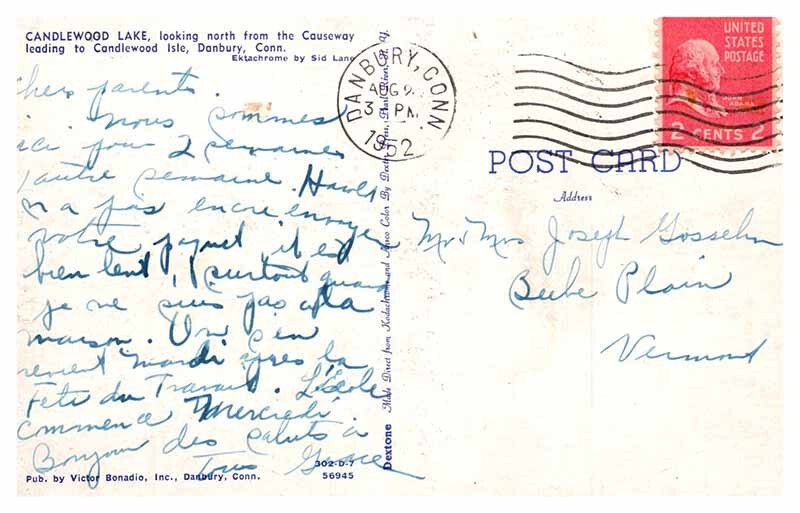 CANDLEWOOD LAKE, looking north from the Causeway
leading to Candlewood Isle, Danbury, Conn.
Ektachrome by Sid Lane
chers parents.
nous sommes
ici pour 2 semaines
l'autre semaine.
n a pas encore envoyer
votre paquet, il est
bien lent, surtout quand
je ne suis pas a la
maison. On s'en
revient mardi apres la
Fête du Travail. L'école
commence Mercredi.
Bonjour des saluts a
Tous Grace
302-D-7
56945
Pub. by Victor Bonadio, Inc., Danbury, Conn.
Dextone Made Direct from Kodachrome and Ansco Color By Dexter Press, Pearl River, N. Y.
DANBURY, CONN
AUG
3 PM
1952
UNITED
STATES
POSTAGE
JOHN
ADAMS
2 CENTS 2
POST CARD
Address
Mr & Mrs Joseph Gosselin
Beebe Plain
Vermont